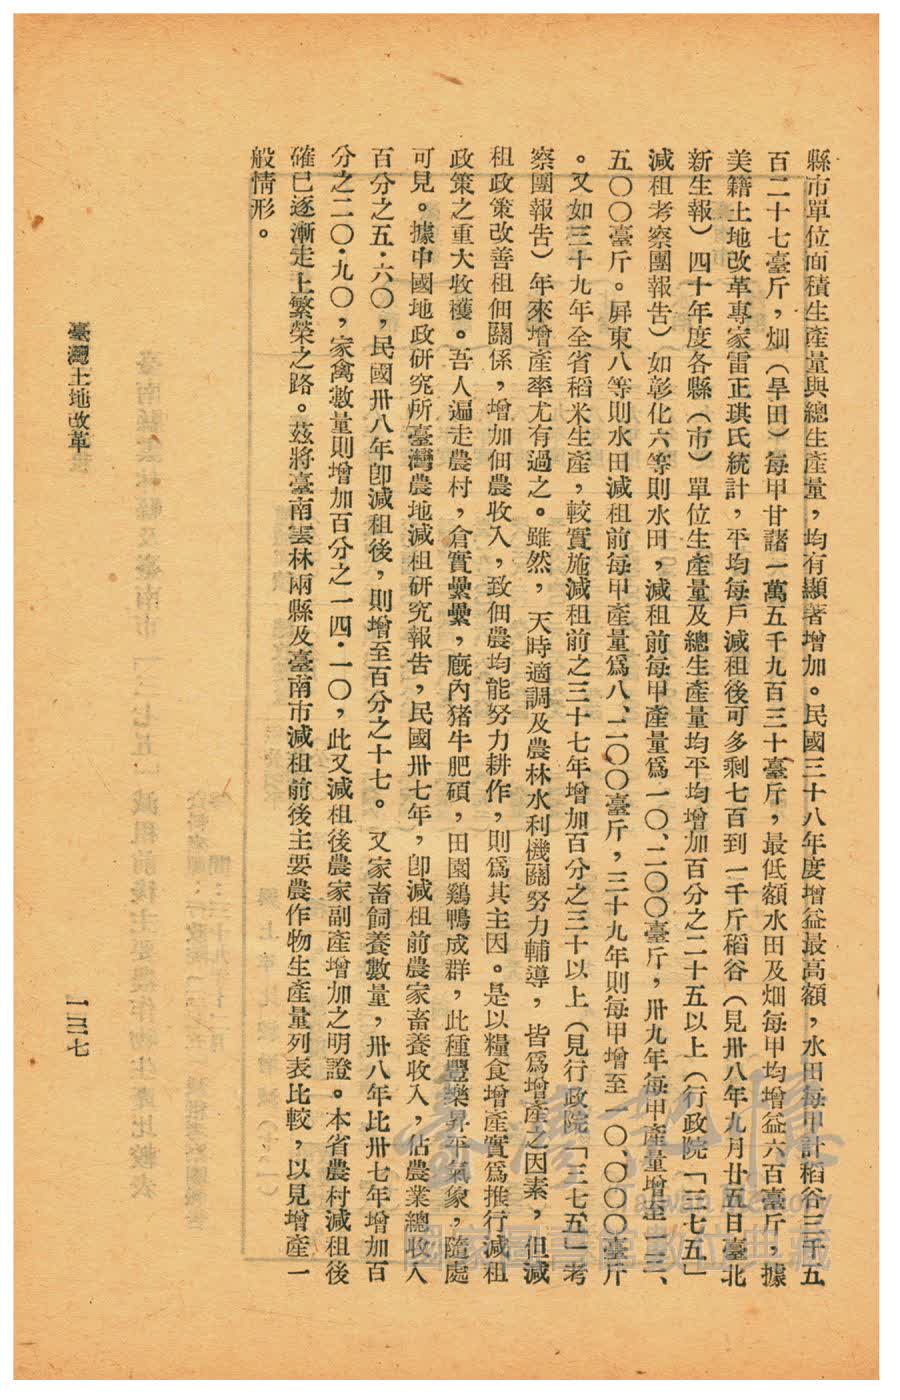 縣市單位面積生產量與總生產量，均有顯著增加。民國三十八年度增益最高額，水田每甲計稻谷三千五
百二十七臺斤，畑（旱田）每甲甘諸一萬五千九百三十臺斤，最低額水田及畑每甲均增益六百臺斤，據
美籍土地改革專家雷正琪氏統計，平均每戶減租後可多剩七百到一千斤稻谷（見卅八年九月廿五日臺北
新生報）四十年度各縣（市）單位生產量及總生產量均平均增加百分之二十五以上（行政院「三七五」
減租考察團報告）如彰化六等則水田，減租前每甲產量爲一〇、二〇〇臺斤，卅九年每甲產量增至一三、
五〇〇臺斤。屏東八等則水田減租前每甲產量爲八、二〇〇臺斤，三十九年則每甲增至一〇、〇〇〇臺斤
。又如三十九年全省稻米生產，較實施減租前之三十七年增加百分之三十以上（見行政院「三七五」考
察團報告）年來增產率尤有過之。雖然，天時適調及農林水利機關努力輔導，皆爲增產之因素，但減
租政策改善租佃關係，增加佃農收入，致佃農均能努力耕作，則爲其主因。是以糧食增產實爲推行減租
政策之重大收穫。吾人遍走農村，倉實纍纍，廐內猪牛肥碩，田園鷄鴨成群，此種豐樂昇平氣象，隨處
可見。據中國地政研究所臺灣農地減租研究報告，民國卅七年，卽減租前農家畜養收入，佔農業總收入
百分之五・六〇，民國卅八年卽減租後，則增至百分之十七。又家畜飼養數量，卅八年比卅七年增加百
分之二〇・九〇，家禽數量則增加百分之一四・一〇，此又減租後農家副產增加之明證。本省農村減租後
確已逐漸走上繁榮之路。茲將臺南雲林兩縣及臺南市減租前後主要農作物生產量列表比較，以見增產一
般情形。
臺灣土地改革
一三七
Taiwan Memory
國家圖書館數位典藏